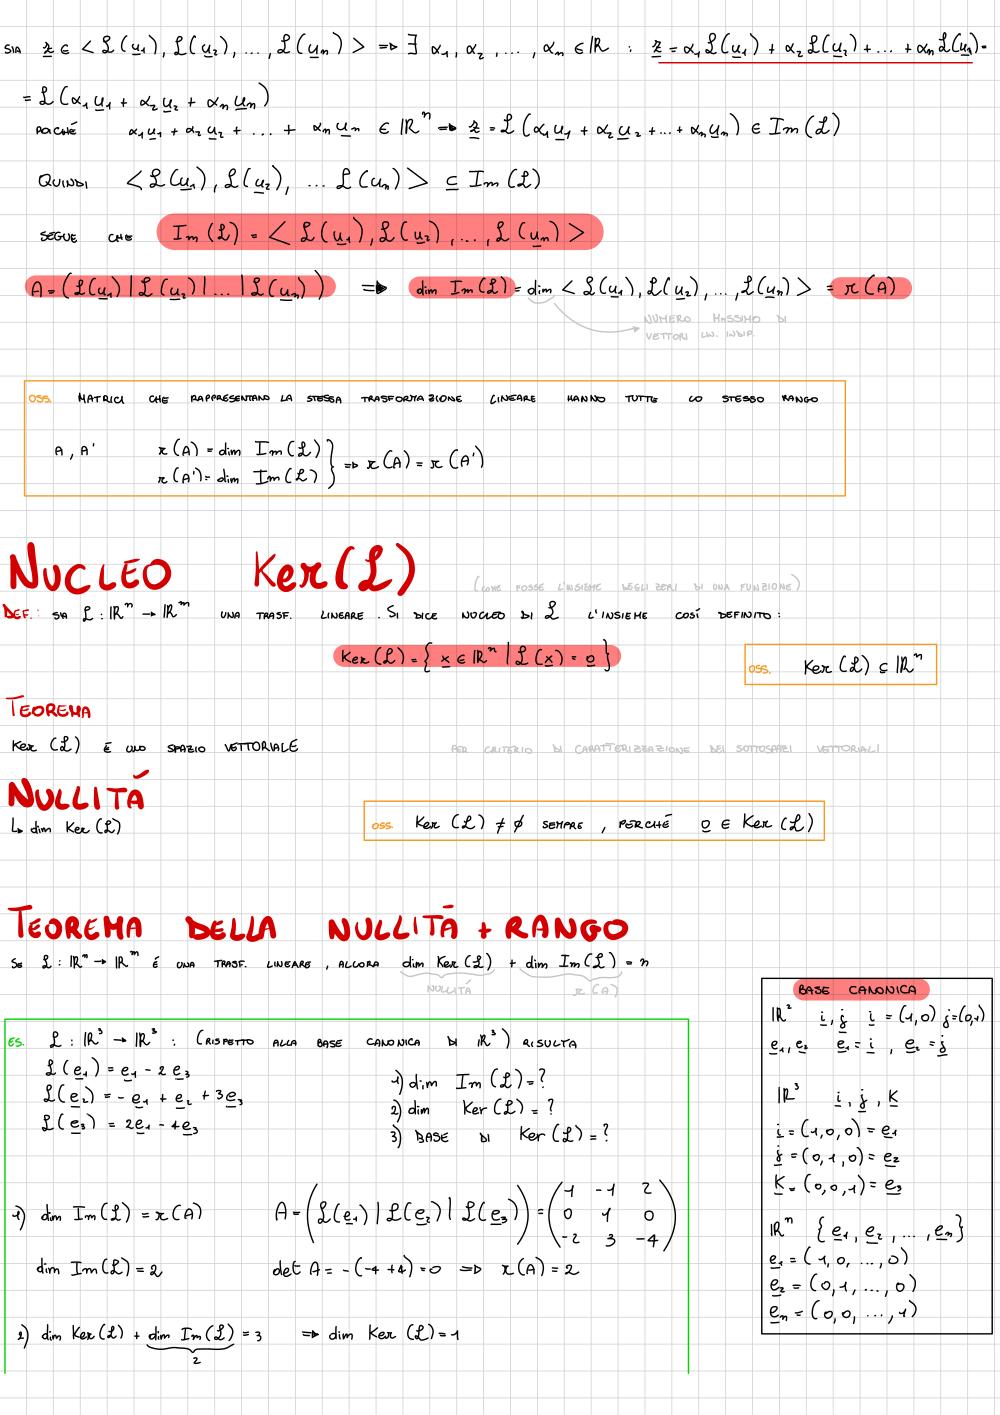 SIA z ∈ < ℒ(u₁), ℒ(u₂), ..., ℒ(uₙ) > => ∃ α₁, α₂, ..., αₙ ∈ ℝ : z = α₁ℒ(u₁) + α₂ℒ(u₂) + ... + αₙℒ(uₙ) =
= ℒ(α₁u₁ + α₂u₂ + αₙuₙ)
POICHÉ α₁u₁ + α₂u₂ + ... + αₙuₙ ∈ ℝⁿ => z = ℒ(α₁u₁ + α₂u₂ + ... + αₙuₙ) ∈ Im(ℒ)
QUINDI < ℒ(u₁), ℒ(u₂), ... ℒ(uₙ) > ⊆ Im(ℒ)
SEGUE CHE Im(ℒ) = < ℒ(u₁), ℒ(u₂), ..., ℒ(uₙ) >
A = (ℒ(u₁) | ℒ(u₂) | ... | ℒ(uₙ)) => dim Im(ℒ) = dim < ℒ(u₁), ℒ(u₂), ..., ℒ(uₙ) > = r(A)
NUMERO MASSIMO DI
VETTORI LIN. INDIP.
OSS. MATRICI CHE RAPPRESENTANO LA STESSA TRASFORMAZIONE LINEARE HANNO TUTTE LO STESSO RANGO
A, A' r(A) = dim Im(ℒ)
r(A') = dim Im(ℒ) } => r(A) = r(A')
NUCLEO Ker(ℒ)
(COME FOSSE L'INSIEME DEGLI ZERI DI UNA FUNZIONE)
DEF.: SIA ℒ : ℝⁿ → ℝᵐ UNA TRASF. LINEARE. SI DICE NUCLEO DI ℒ L'INSIEME COSÍ DEFINITO:
Ker(ℒ) = { x ∈ ℝⁿ | ℒ(x) = 0 }
OSS. Ker(ℒ) ⊆ ℝⁿ
TEOREMA
Ker(ℒ) É UNO SPAZIO VETTORIALE PER CRITERIO DI CARATTERIZZAZIONE DEI SOTTOSPAZI VETTORIALI
NULLITÁ
↳ dim Ker(ℒ)
OSS. Ker(ℒ) ≠ ∅ SEMPRE, PERCHÉ 0 ∈ Ker(ℒ)
TEOREMA DELLA NULLITÁ + RANGO
SE ℒ : ℝⁿ → ℝᵐ É UNA TRASF. LINEARE, ALLORA dim Ker(ℒ) + dim Im(ℒ) = n
NULLITÁ r(A)
ES. ℒ : ℝ³ → ℝ³ : (RISPETTO ALLA BASE CANONICA DI ℝ³) RISULTA
ℒ(e₁) = e₁ - 2e₃
ℒ(e₂) = -e₁ + e₂ + 3e₃
ℒ(e₃) = 2e₁ - 4e₃
1) dim Im(ℒ) = ?
2) dim Ker(ℒ) = ?
3) BASE DI Ker(ℒ) = ?
1) dim Im(ℒ) = r(A) A = (ℒ(e₁) | ℒ(e₂) | ℒ(e₃)) =
1 -1 2
0 1 0
-2 3 -4
dim Im(ℒ) = 2 det A = -(-4 + 4) = 0 => r(A) = 2
2) dim Ker(ℒ) + dim Im(ℒ) = 3 => dim Ker(ℒ) = 1
2
BASE CANONICA
ℝ² i, j i = (1,0) j = (0,1)
e₁, e₂ e₁ = i, e₂ = j
ℝ³ i, j, K
i = (1,0,0) = e₁
j = (0,1,0) = e₂
K = (0,0,1) = e₃
ℝⁿ {e₁, e₂, ..., eₙ}
e₁ = (1,0,...,0)
e₂ = (0,1,...,0)
eₙ = (0,0,...,1)